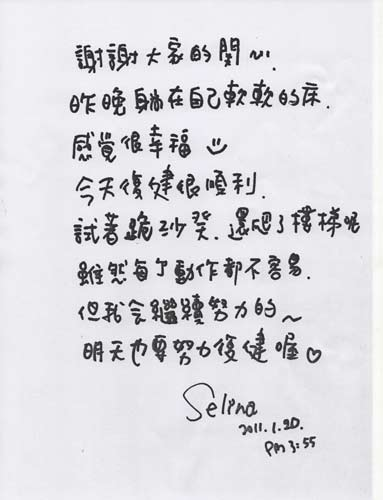 謝謝大家的關心.
昨晚躺在自己軟軟的床.
感覺很幸福
今天復健很順利.
試著跪沙發.還爬了樓梯呢
雖然每个動作都不容易.
但我会繼續努力的~
明天也要努力復健喔♡
Selina
2011.1.20.
PM 3:55